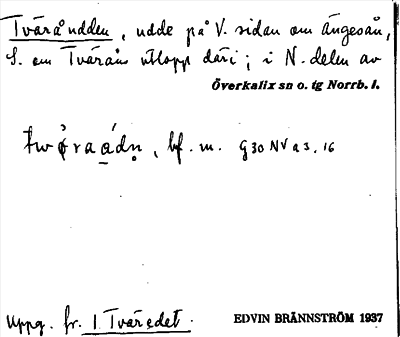 Tväråudden, udde på V. sidan om Ängesån,
S. om Tväråns utlopp däri; i N. delen av
Överkalix sn o. tg Norrb. l.
bf. m. G30 NV a 3, 16
Uppg. fr. 1 Tväredet.
EDVIN BRÄNNSTRÖM 1937